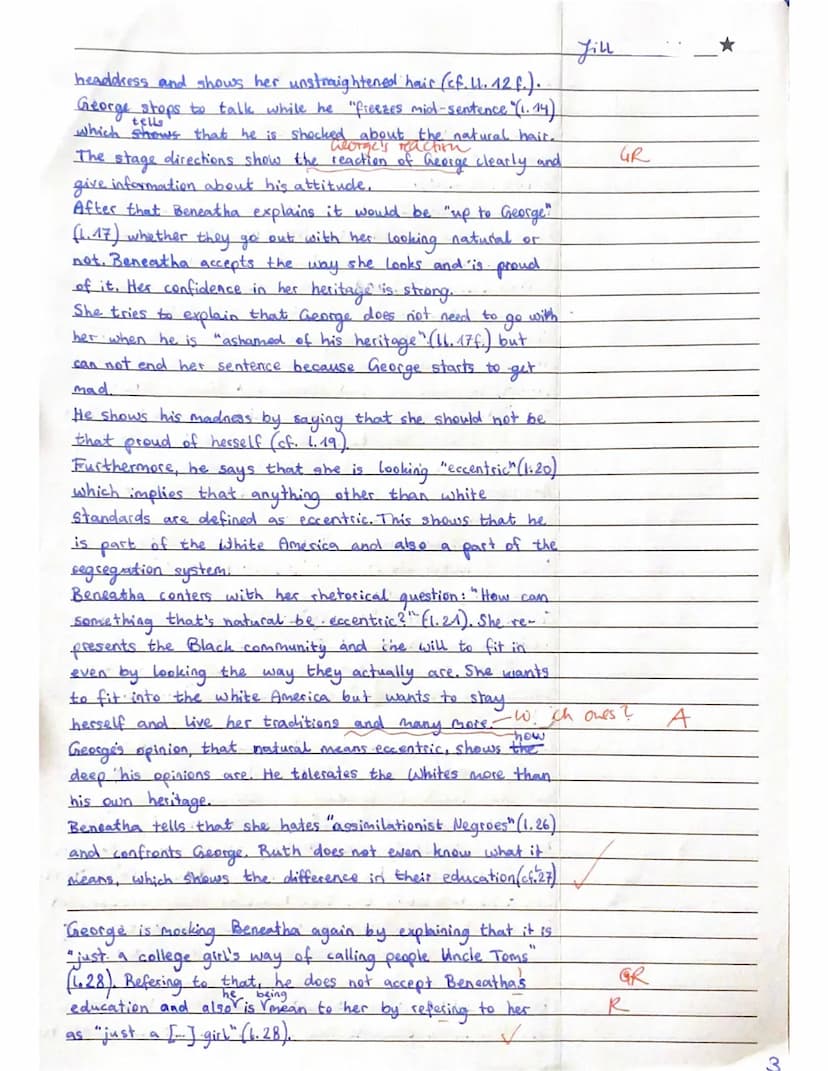 Jill
headdress and shows her unstraightened hair (cf. ll. 12 f.).
George stops to talk while he "freezes mid-sentence" (l. 14)
tells
which shows that he is shocked about the natural hair.
George's reaction
The stage directions show the reaction of George clearly and GR
give information about his attitude.
After that Beneatha explains it would be "up to George"
(l. 17) whether they go out with her looking natural or
not. Beneatha accepts the way she looks and is proud
of it. Her confidence in her heritage is strong.
She tries to explain that George does not need to go with
her when he is "ashamed of his heritage" (ll. 17f.) but
can not end her sentence because George starts to get
mad.
He shows his madness by saying that she should not be
that proud of herself (cf. l. 19).
Furthermore, he says that she is looking "eccentric" (l. 20)
which implies that anything other than white
standards are defined as eccentric. This shows that he
is part of the White America and also a part of the
segregation system.
Beneatha conters with her rhetorical question: "How can
something that's natural be eccentric?" (l. 21). She re-
presents the Black community and the will to fit in
even by looking the way they actually are. She wants
to fit into the white America but wants to stay
herself and live her traditions and many more. ones? A
how
George's opinion, that natural means eccentric, shows the
deep his opinions are. He tolerates the Whites more than
his own heritage.
Beneatha tells that she hates "assimilationist Negroes" (l. 26)
and confronts George. Ruth does not even know what it
means, which shows the difference in their education (cf. l. 27) ✓
George is mocking Beneatha again by explaining that it is
"just a college girl's way of calling people Uncle Toms"
(l. 28). Refering to that, he does not accept Beneatha's GR
he being
education and also is mean to her by refering to her R
as "just a [...] girl" (l. 28). ✓
3